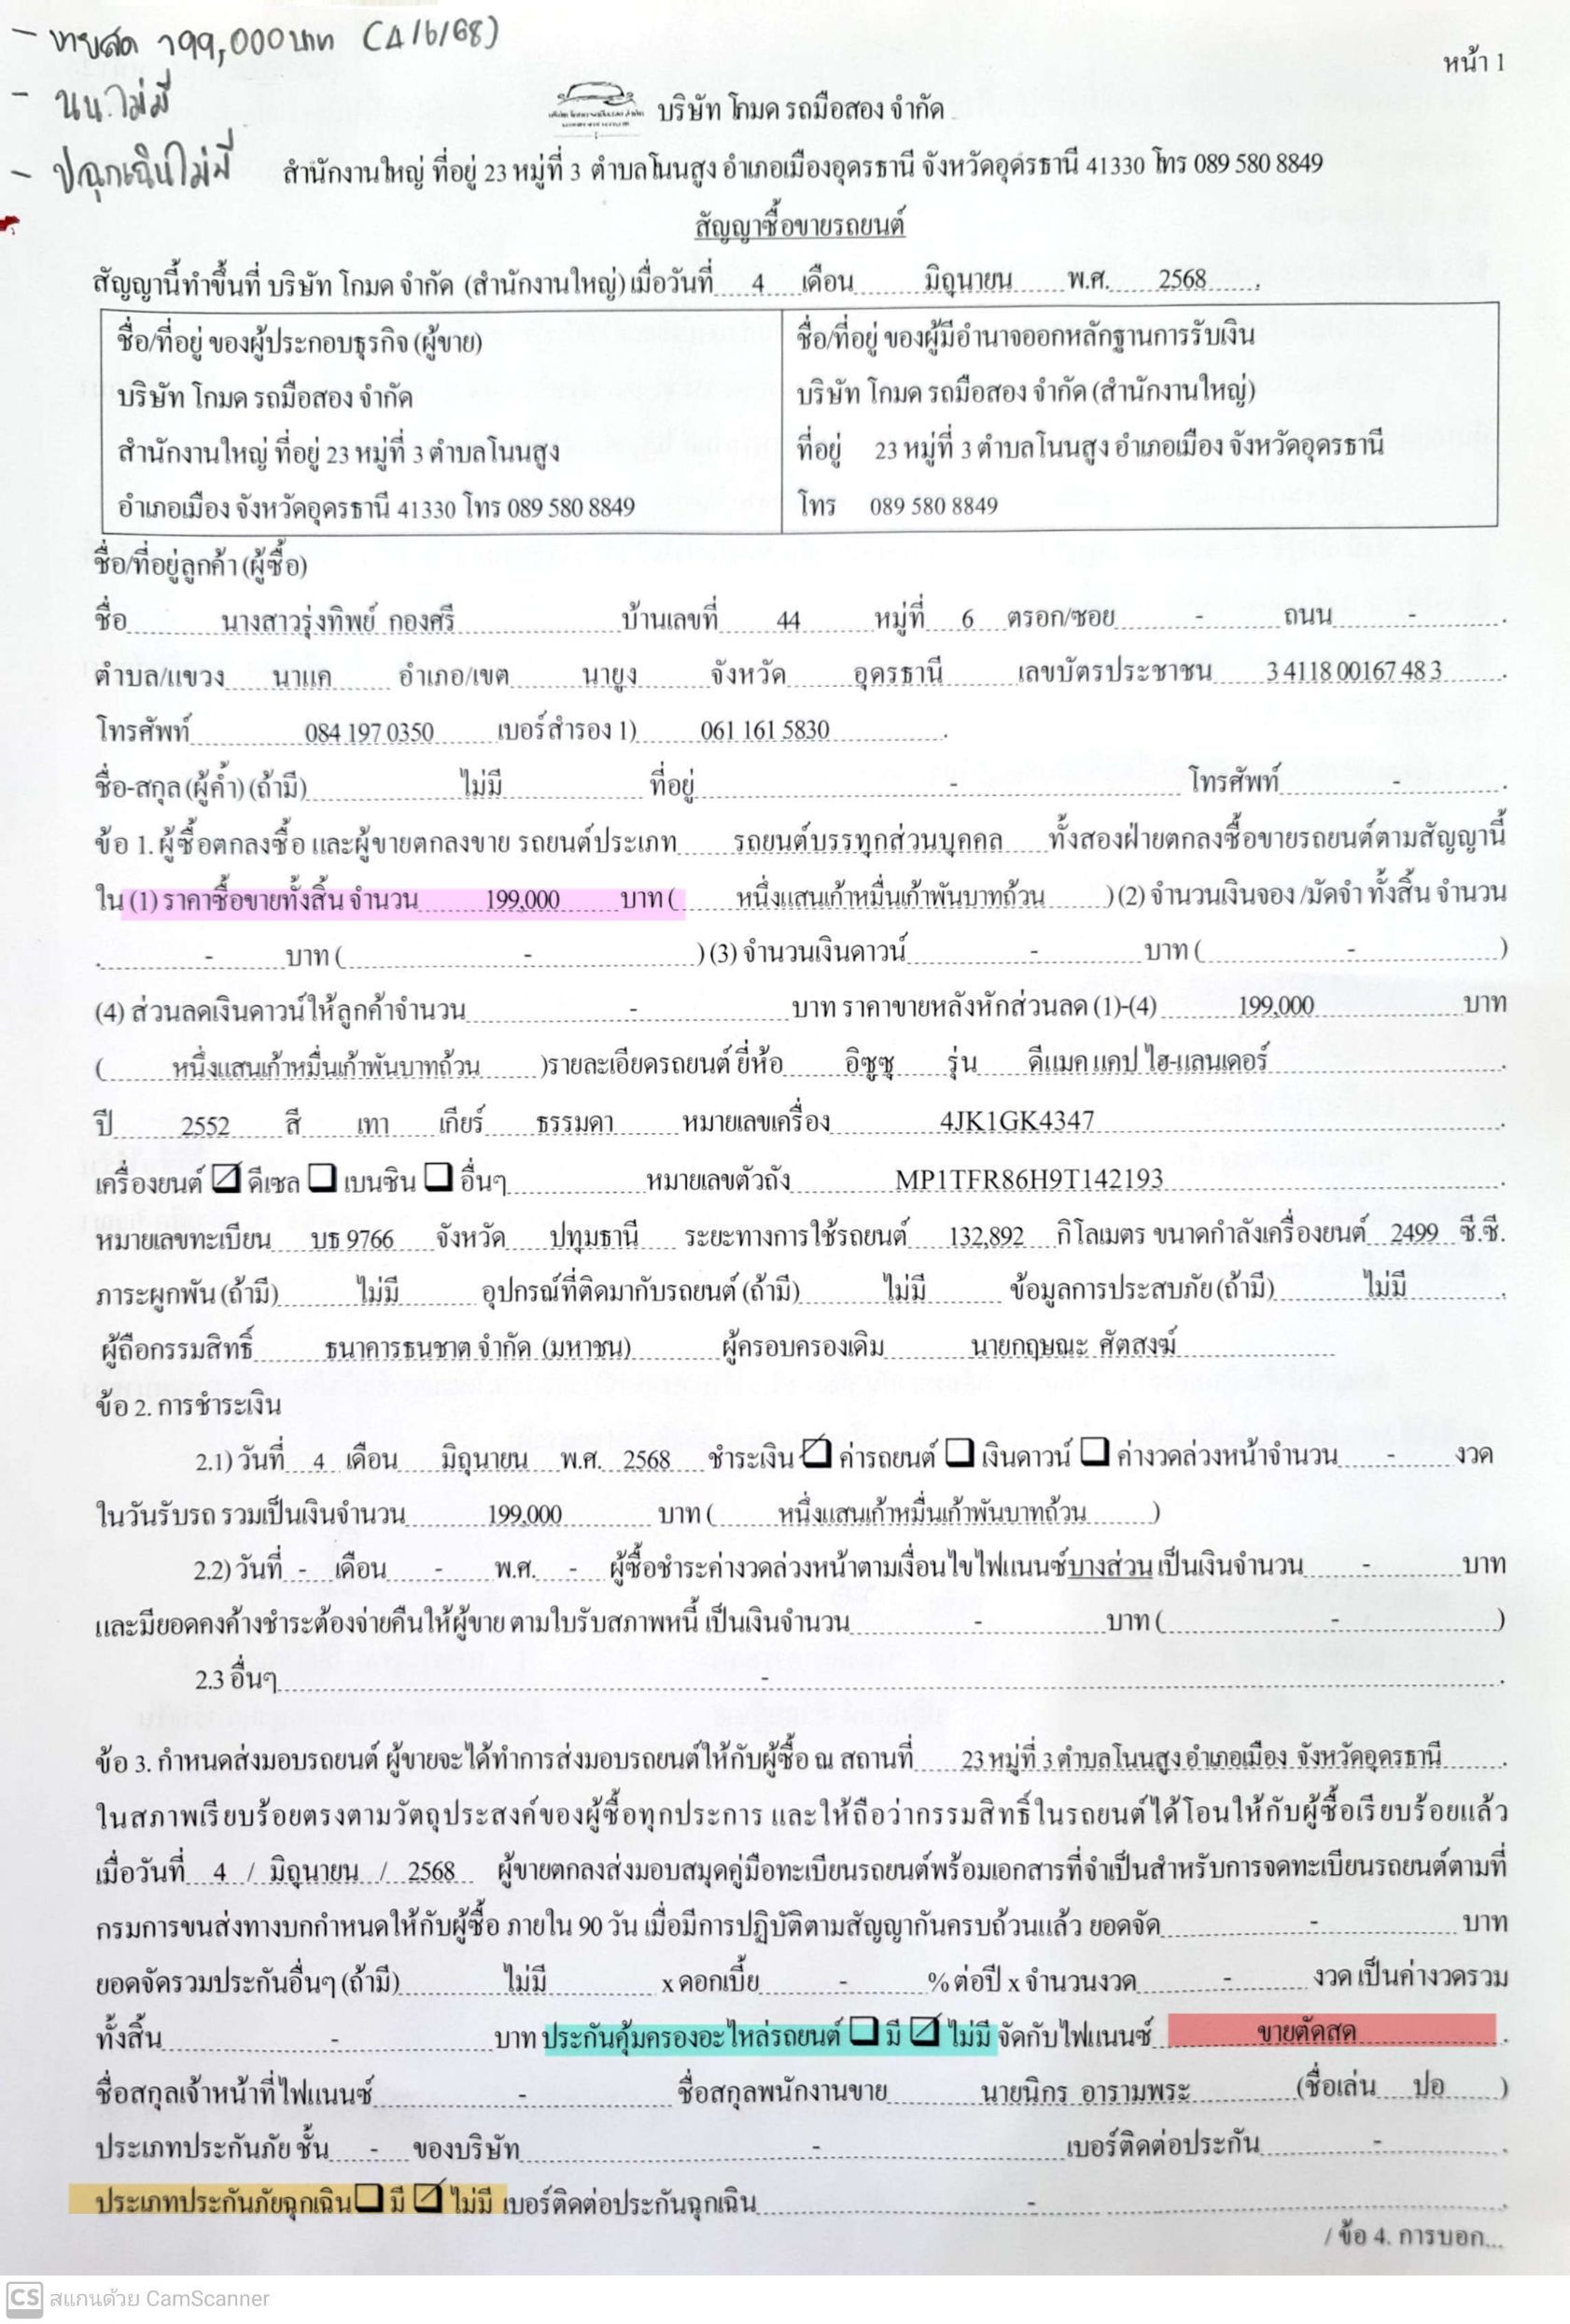 - ขายสด 199,000 บาท (4/6/68)
- นน.ไม่มี
- ปฉุกเฉินไม่มี
หน้า 1
บริษัท โกมด รถมือสอง จำกัด
สำนักงานใหญ่ ที่อยู่ 23 หมู่ที่ 3 ตำบลโนนสูง อำเภอเมืองอุดรธานี จังหวัดอุดรธานี 41330 โทร 089 580 8849
สัญญาซื้อขายรถยนต์
สัญญานี้ทำขึ้นที่ บริษัท โกมด จำกัด (สำนักงานใหญ่) เมื่อวันที่ 4 เดือน มิถุนายน พ.ศ. 2568
ชื่อ/ที่อยู่ ของผู้ประกอบธุรกิจ (ผู้ขาย)
บริษัท โกมด รถมือสอง จำกัด
สำนักงานใหญ่ ที่อยู่ 23 หมู่ที่ 3 ตำบลโนนสูง
อำเภอเมือง จังหวัดอุดรธานี 41330 โทร 089 580 8849
ชื่อ/ที่อยู่ ของผู้มีอำนาจออกหลักฐานการรับเงิน
บริษัท โกมด รถมือสอง จำกัด (สำนักงานใหญ่)
ที่อยู่ 23 หมู่ที่ 3 ตำบลโนนสูง อำเภอเมือง จังหวัดอุดรธานี
โทร 089 580 8849
ชื่อ/ที่อยู่ลูกค้า (ผู้ซื้อ)
ชื่อ นางสาวรุ่งทิพย์ กองศรี บ้านเลขที่ 44 หมู่ที่ 6 ตรอก/ซอย - ถนน -
ตำบล/แขวง นาแค อำเภอ/เขต นายูง จังหวัด อุดรธานี เลขบัตรประชาชน 3 4118 00167 48 3
โทรศัพท์ 084 197 0350 เบอร์สำรอง 1) 061 161 5830
ชื่อ-สกุล (ผู้ค้ำ) (ถ้ามี) ไม่มี ที่อยู่ - โทรศัพท์ -
ข้อ 1. ผู้ซื้อตกลงซื้อ และผู้ขายตกลงขาย รถยนต์ประเภท รถยนต์บรรทุกส่วนบุคคล ทั้งสองฝ่ายตกลงซื้อขายรถยนต์ตามสัญญานี้
ใน (1) ราคาซื้อขายทั้งสิ้น จำนวน 199,000 บาท ( หนึ่งแสนเก้าหมื่นเก้าพันบาทถ้วน ) (2) จำนวนเงินจอง /มัดจำ ทั้งสิ้น จำนวน
- บาท ( - ) (3) จำนวนเงินดาวน์ - บาท ( - )
(4) ส่วนลดเงินดาวน์ให้ลูกค้าจำนวน - บาท ราคาขายหลังหักส่วนลด (1)-(4) 199,000 บาท
( หนึ่งแสนเก้าหมื่นเก้าพันบาทถ้วน )รายละเอียดรถยนต์ ยี่ห้อ อิซูซุ รุ่น ดีแมค แคป ไฮ-แลนเดอร์
ปี 2552 สี เทา เกียร์ ธรรมดา หมายเลขเครื่อง 4JK1GK4347
เครื่องยนต์ ☑ ดีเซล ☐ เบนซิน ☐ อื่นๆ หมายเลขตัวถัง MP1TFR86H9T142193
หมายเลขทะเบียน บธ 9766 จังหวัด ปทุมธานี ระยะทางการใช้รถยนต์ 132,892 กิโลเมตร ขนาดกำลังเครื่องยนต์ 2499 ซี.ซี.
ภาระผูกพัน (ถ้ามี) ไม่มี อุปกรณ์ที่ติดมากับรถยนต์ (ถ้ามี) ไม่มี ข้อมูลการประสบภัย (ถ้ามี) ไม่มี
ผู้ถือกรรมสิทธิ์ ธนาคารธนชาต จำกัด (มหาชน) ผู้ครอบครองเดิม นายกฤษณะ ศัตสงฆ์
ข้อ 2. การชำระเงิน
2.1) วันที่ 4 เดือน มิถุนายน พ.ศ. 2568 ชำระเงิน ☑ ค่ารถยนต์ ☐ เงินดาวน์ ☐ ค่างวดล่วงหน้าจำนวน - งวด
ในวันรับรถ รวมเป็นเงินจำนวน 199,000 บาท ( หนึ่งแสนเก้าหมื่นเก้าพันบาทถ้วน )
2.2) วันที่ - เดือน - พ.ศ. - ผู้ซื้อชำระค่างวดล่วงหน้าตามเงื่อนไขไฟแนนซ์บางส่วน เป็นเงินจำนวน - บาท
และมียอดคงค้างชำระต้องจ่ายคืนให้ผู้ขาย ตามใบรับสภาพหนี้ เป็นเงินจำนวน - บาท ( - )
2.3 อื่นๆ -
ข้อ 3. กำหนดส่งมอบรถยนต์ ผู้ขายจะได้ทำการส่งมอบรถยนต์ให้กับผู้ซื้อ ณ สถานที่ 23 หมู่ที่ 3 ตำบลโนนสูง อำเภอเมือง จังหวัดอุดรธานี
ในสภาพเรียบร้อยตรงตามวัตถุประสงค์ของผู้ซื้อทุกประการ และให้ถือว่ากรรมสิทธิ์ในรถยนต์ได้โอนให้กับผู้ซื้อเรียบร้อยแล้ว
เมื่อวันที่ 4 / มิถุนายน / 2568 ผู้ขายตกลงส่งมอบสมุดคู่มือทะเบียนรถยนต์พร้อมเอกสารที่จำเป็นสำหรับการจดทะเบียนรถยนต์ตามที่
กรมการขนส่งทางบกกำหนดให้กับผู้ซื้อ ภายใน 90 วัน เมื่อมีการปฏิบัติตามสัญญากันครบถ้วนแล้ว ยอดจัด - บาท
ยอดจัดรวมประกันอื่นๆ (ถ้ามี) ไม่มี x ดอกเบี้ย - % ต่อปี x จำนวนงวด - งวด เป็นค่างวดรวม
ทั้งสิ้น - บาท ประกันคุ้มครองอะไหล่รถยนต์ ☐ มี ☑ ไม่มี จัดกับไฟแนนซ์ ขายตัดสด
ชื่อสกุลเจ้าหน้าที่ไฟแนนซ์ - ชื่อสกุลพนักงานขาย นายนิกร อารามพระ (ชื่อเล่น ปอ )
ประเภทประกันภัย ชั้น - ของบริษัท - เบอร์ติดต่อประกัน -
ประเภทประกันภัยฉุกเฉิน ☐ มี ☑ ไม่มี เบอร์ติดต่อประกันฉุกเฉิน -
/ ข้อ 4. การบอก...
CS สแกนด้วย CamScanner